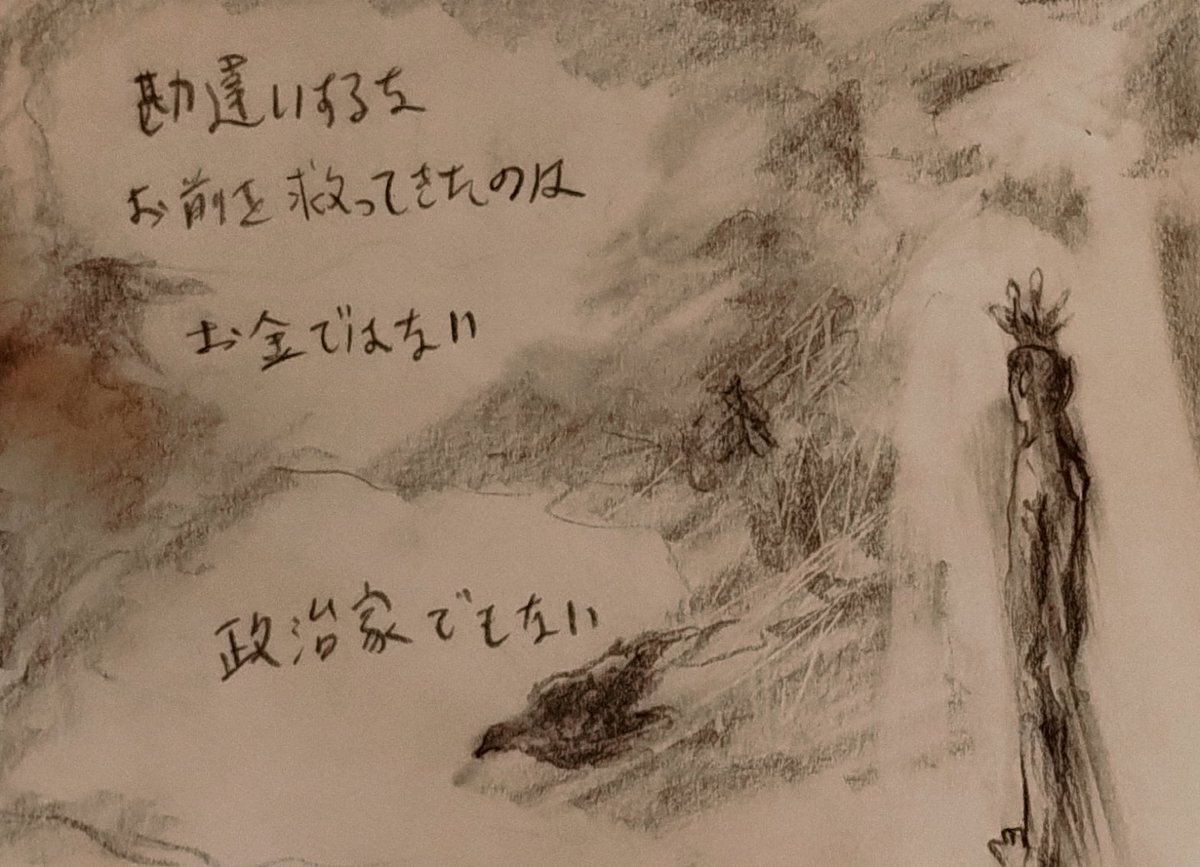 勘違いするな
お前を救ってきたのは
お金ではない
政治家でもない